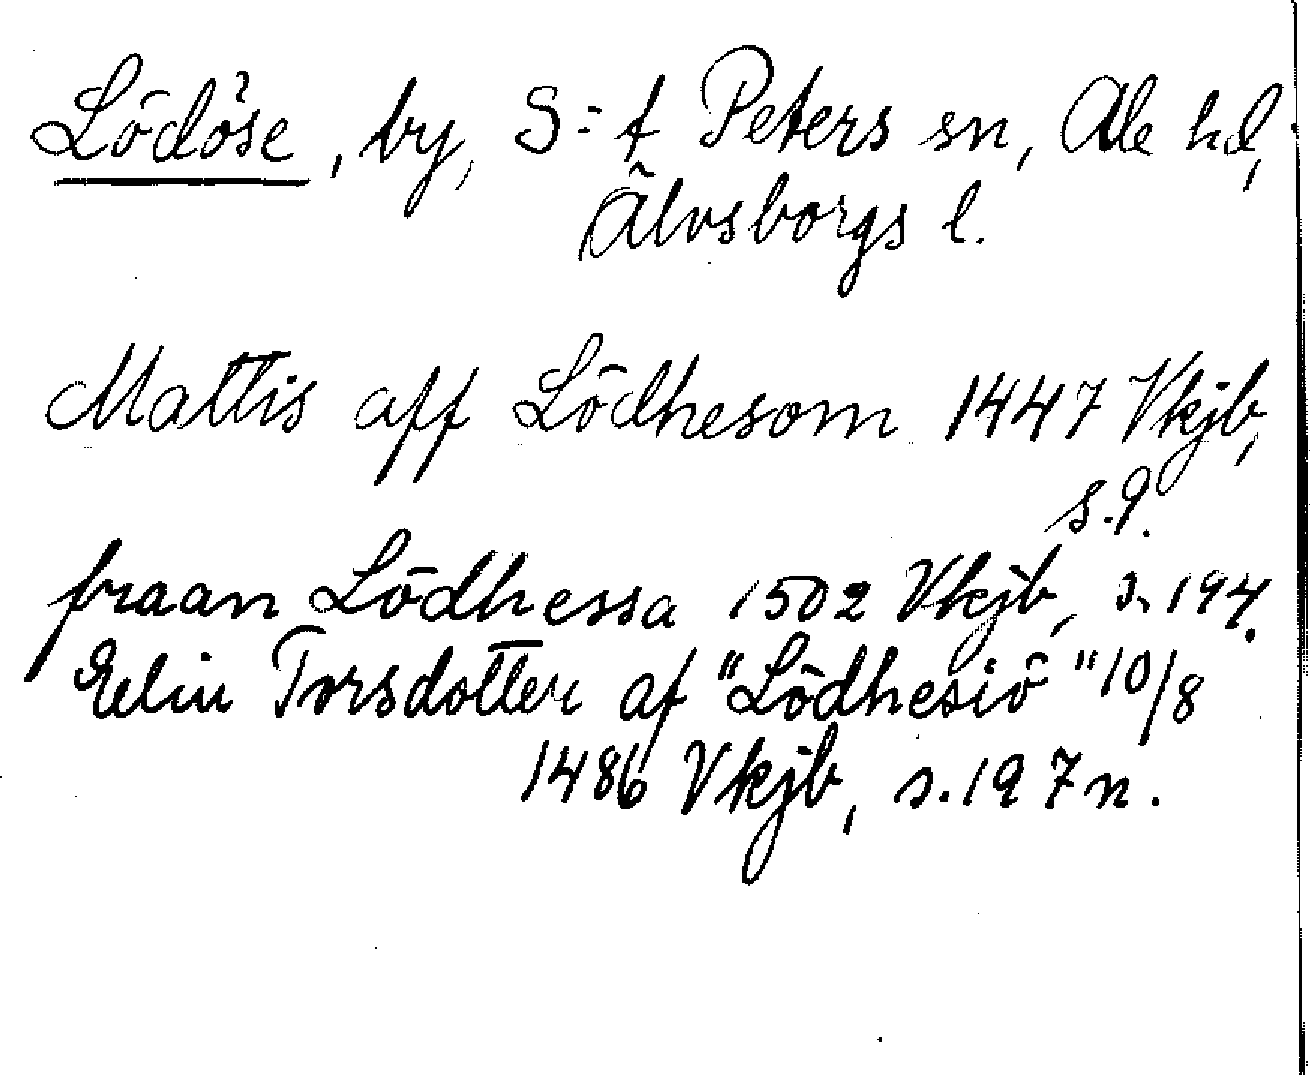 Lödöse, by, S:t Peters sn, Ale hd,
Älvsborgs l.
Mattis aff Lödhesom 1447 Vkjb,
s.9.
fraan Lödhessa 1502 Vkjb, s.194.
Eelin Torsdotter af "Lödhesiö" 10/8
1486 Vkjb, s.197n.